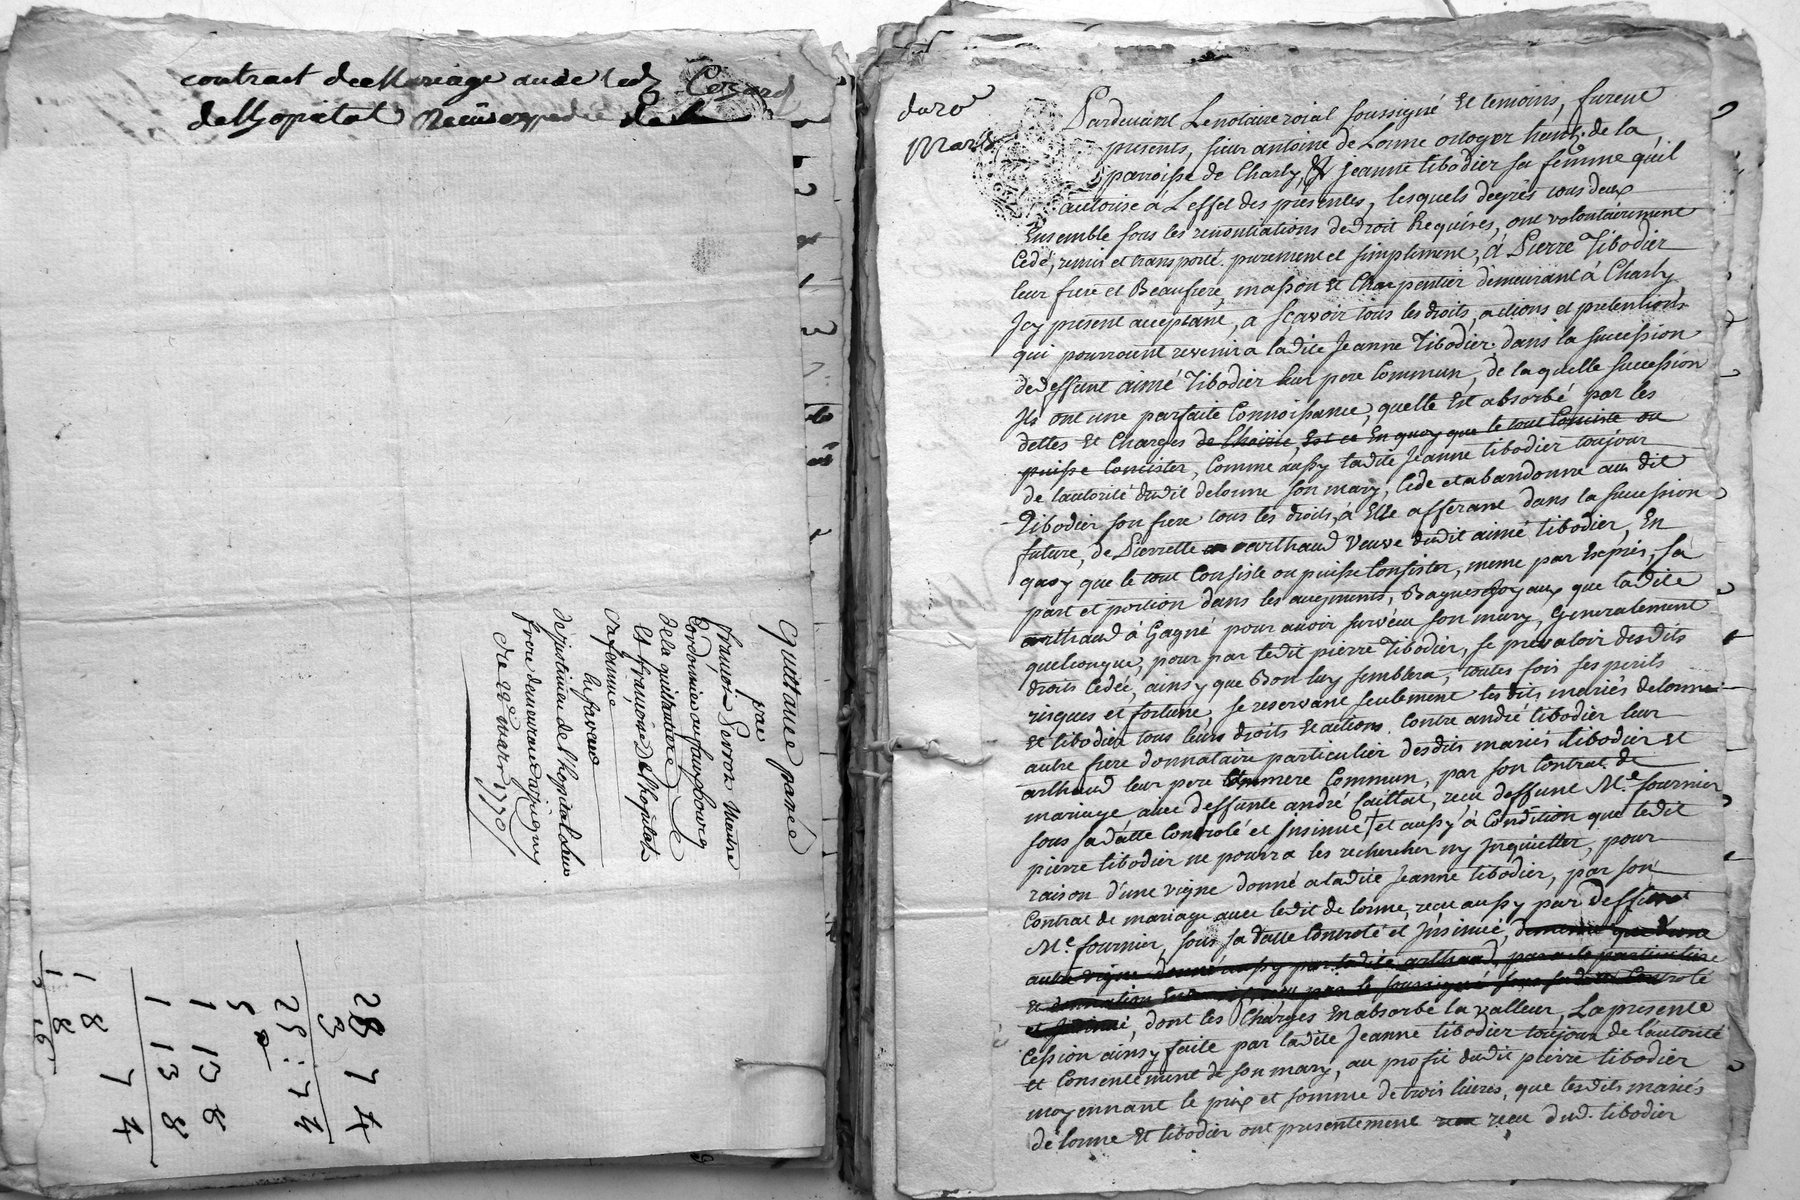 contract de Mariage
de lhopital
Quittance passée
par
françois Perron Maitre
Cordonnier au fauxbourg
de la guillautiere
Et françoise De lhopital
Le faveur
de justinien de lhopital leur
frere demeurant a jrigny
du 22e mars 1770
28 7 4
3
25 : 7 4
5
1 13 8
1 13 8
7 4
1 8
1 8
du 20e
Mars
Pardevant Le notaire roial soussigné Et temoins, furent
presents, sieur antoine de Lorme orloger habit. de la
parroisse de Charly, & Jeanne tibodier sa femme qu'il
autorise a L'effet des presentes, lesquels degrés tous deux
Ensemble sous les renontiations de Droit Requises, ont volontairement
Cedé, remis et transporté purement et simplement, à Pierre Tibodier
leur frere et Beaufrere, masson Et Charpentier demeurant à Charly
Jcy present acceptant, a scavoir tous les droits, actions et pretentions
qui pourroient revenir a ladite Jeanne Tibodier dans la succession
de deffunt aimé Tibodier leur pere Commun, de laquelle succession
Ils ont une parfaite Connoissance, quelle Est absorbé par les
dettes Et Charges de Lhoirie, Est ce En quoy que le tout Consiste ou
puisse Consister, Comme aussy ladite Jeanne tibodier toujour
de l'autorité dudit delorme son mary, Cede et abandonne au dit
Tibodier son frere tous les droits, à Elle afferant dans la succession
future, de Pierrette arthaud Veuve dudit aimé tibodier, En
quoy que le tout Consiste ou puisse Consister, meme par Exprés, sa
part et portion dans les augments, Bagues & joyaux que ladite
arthaud à Gagné pour avoir survécu son mary, Generalement
quelconque, pour par ledit pierre Tibodier, se prevaloir desdits
droits Cedée, ainsy que Bon luy semblera, toutes fois ses perils
risques et fortune, se reservant seulement les dits mariés delorme
Et tibodier tous leurs droits Et actions Contre andré tibodier leur
autre frere donnataire particulier desdits mariés tibodier Et
arthaud leur pere Et mere Commun, par son Contrat de
mariage avec deffunte andré Caillat, recu deffunt Me fournier
sous sa datte Controlé et Insinué + et aussy à Condition que ledit
pierre tibodier ne pourra les rechercher ny Inquietter, pour
raison d'une vigne donné a ladite Jeanne tibodier, par son
Contrat de mariage avec ledit de lorme, recu aussy par deffunt
Me fournier, sous sa datte Controlé et Insinué,
autre vigne donné aussy par ladite arthaud, par acte particuliere
dont les Charges En absorbe la valleur, La presente
Cession ainsy faite par ladite Jeanne tibodier toujour de l'autorité
et Consentement de son mary, au profit dudit pierre tibodier
moyennant le prix et somme de trois livres, que lesdits mariés
de lorme Et tibodier ont presentement recu dud. tibodier